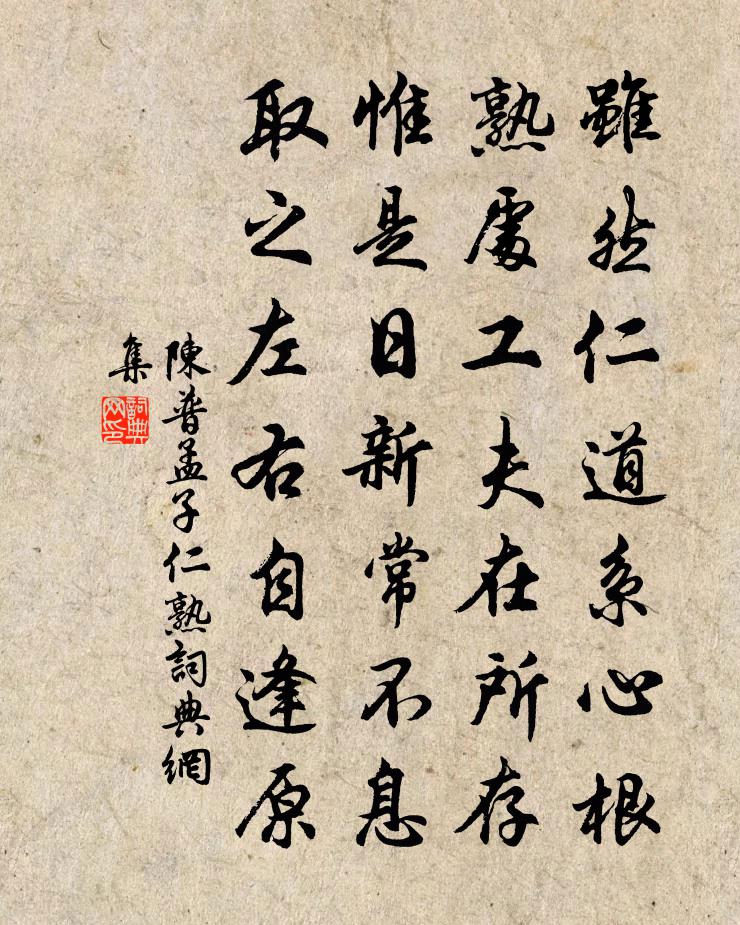 雖然仁道系心根
熟處工夫在所存
惟是日新常不息
取之左右自逢原
陳普孟子仁熟詞典網
集
詞典
网印